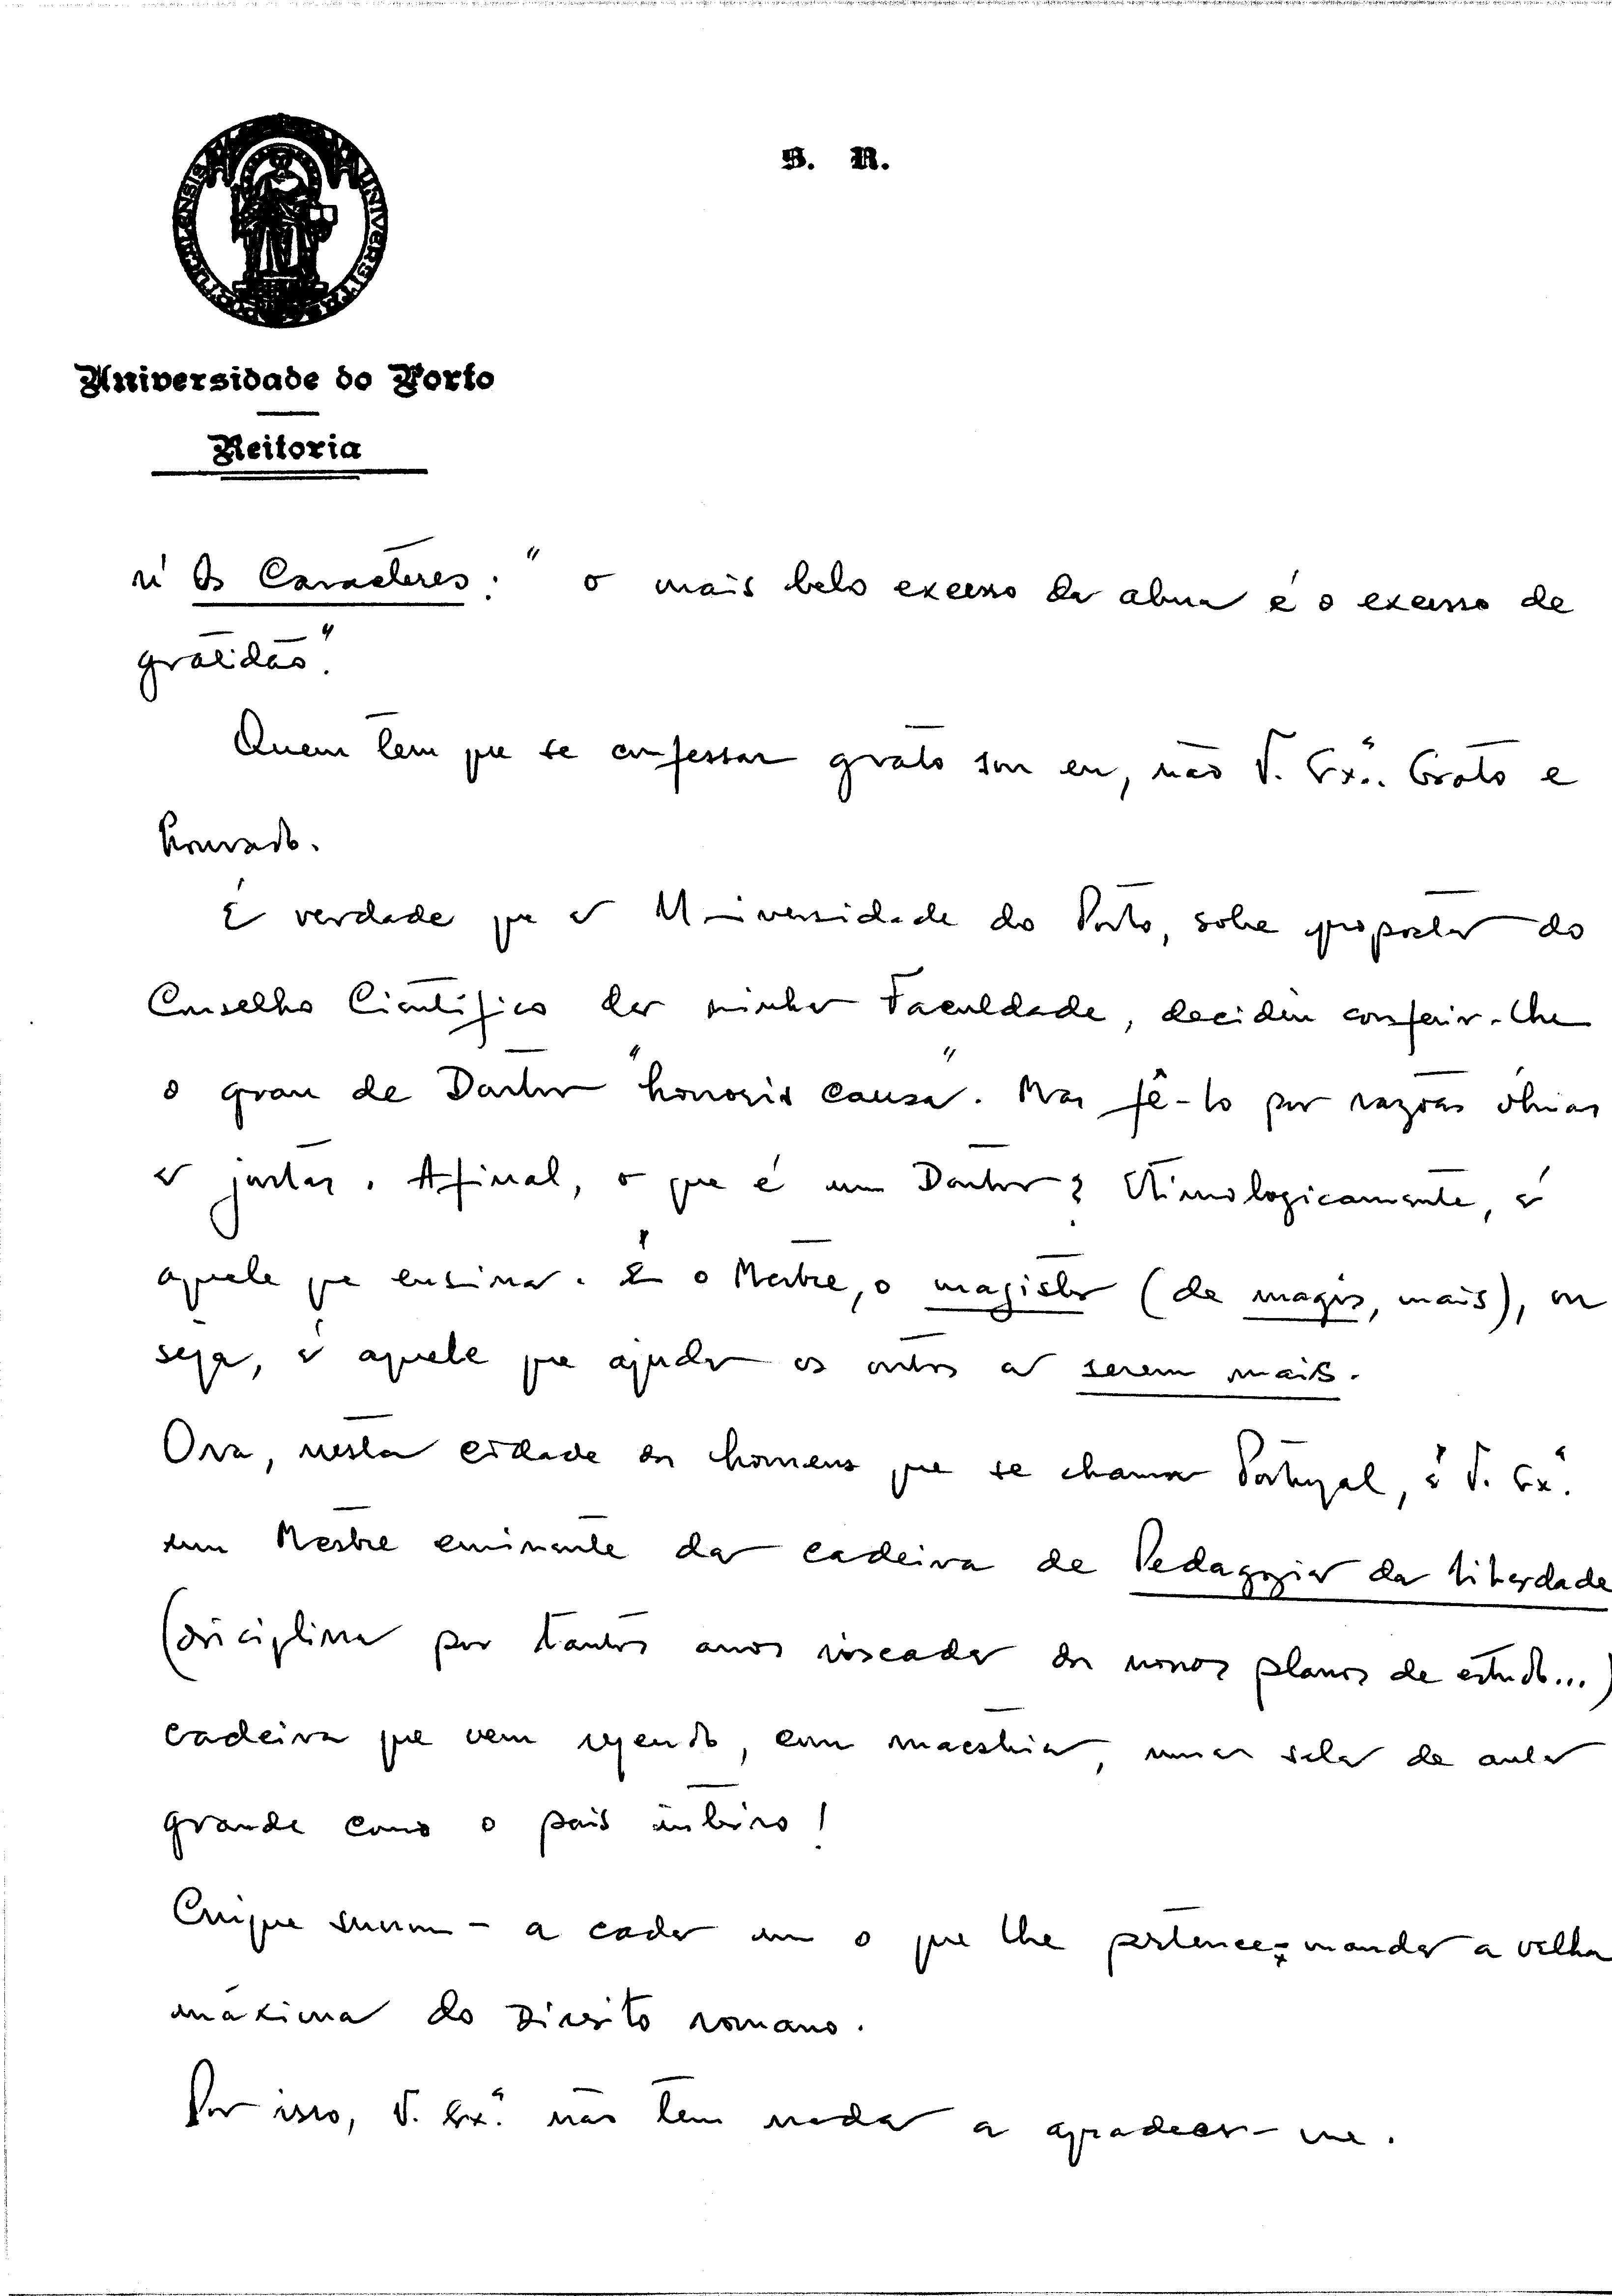 UNIVERSITAS PORTUCALENSIS
S. R.
Universidade do Porto
Reitoria
n' Os Caracteres: "o mais belo excesso da alma é o excesso de
gratidão".
Quem tem que se confessar grato sou eu, não V. Exª.. Grato e
honrado.
É verdade que a Universidade do Porto, sobre proposta do
Conselho Científico da minha Faculdade, decidiu conferir-lhe
o grau de Doutor "honoris causa". Mas fê-lo por razões óbvias
e justas. Afinal, o que é um Doutor? Etimologicamente, é
aquele que ensina. É o Mestre, o magister (de magis, mais), ou
seja, é aquele que ajuda os outros a serem mais.
Ora, nesta cidade de homens que se chama Portugal, é V. Exª.
um Mestre eminente da cadeira de Pedagogia da liberdade
(disciplina por tantos anos riscada dos nossos planos de estudo...)
cadeira que vem regendo, com maestria, numa sala de aula
grande como o país inteiro!
Cuique suum - a cada um o que lhe pertence - manda a velha
máxima do Direito romano.
Por isso, V. Exª. não tem nada a agradecer-me.